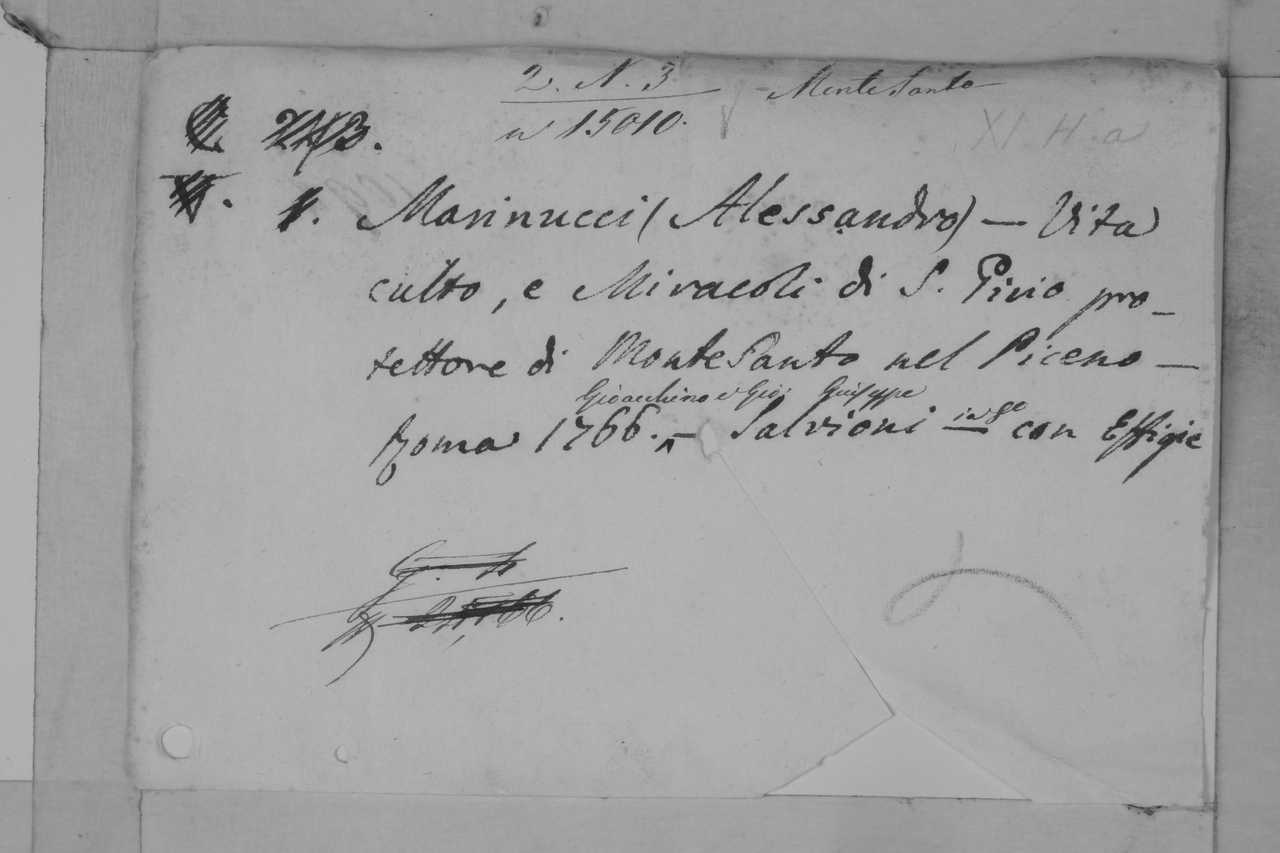 2. N. 3 - Monte Santo
n 15010.
XI. H. a
243.
1. Marinucci (Alessandro) — Vita
culto, e Miracoli di S. Pirio pro-
tettore di MonteSanto nel Piceno —
Gioacchino e Gio: Giuseppe
Roma 1766. — Salvioni in 8o con Effigie